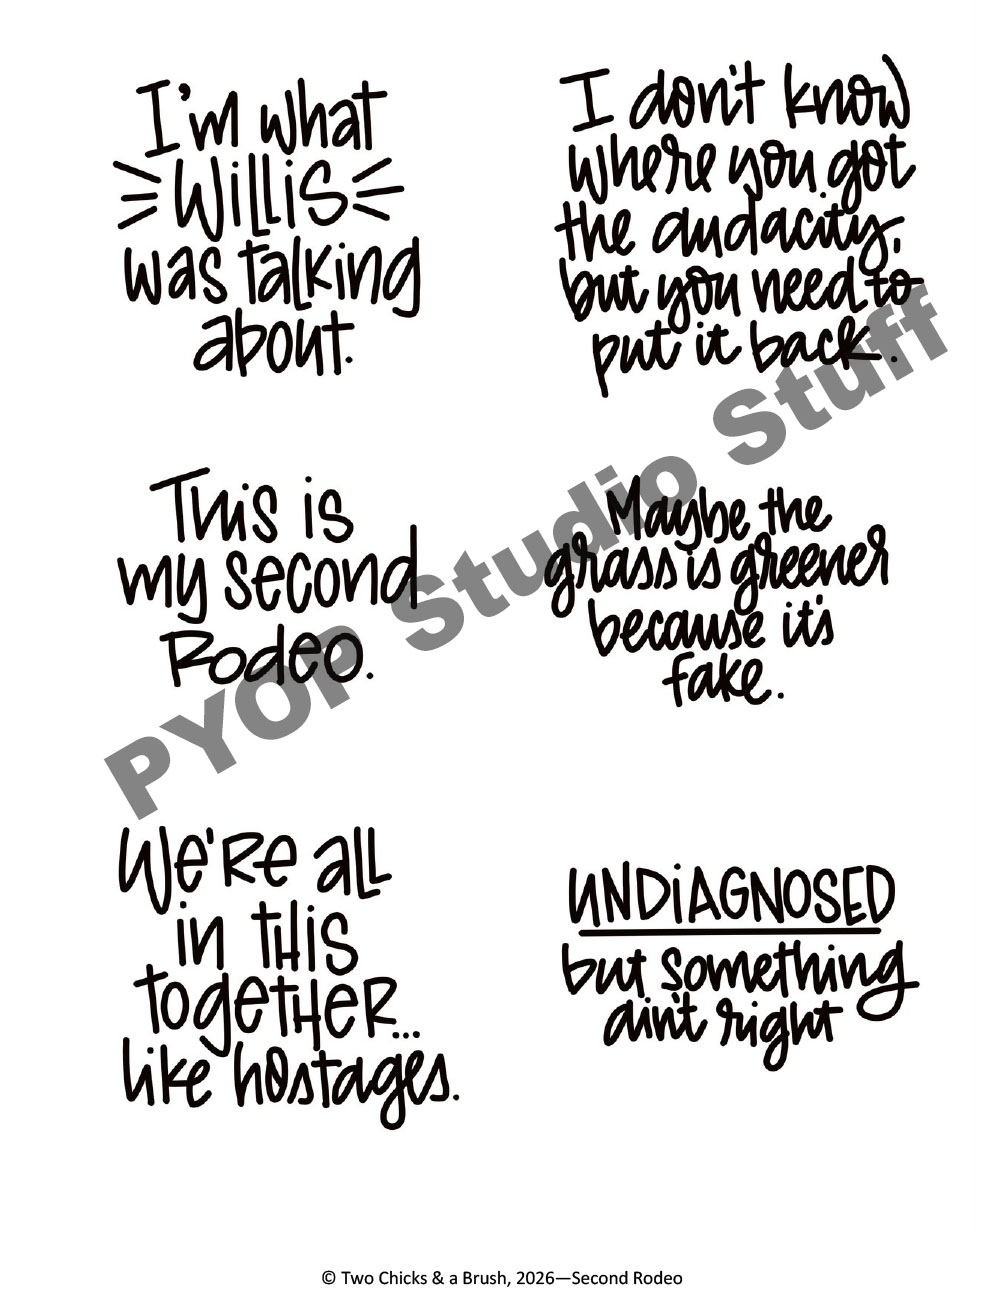 I'm what
WiLLiS
was talking
about.
I don't know
where you got
the audacity,
but you need to
put it back.
This is
my second
Rodeo.
Maybe the
grass is greener
because it's
fake.
We're all
in this
together...
like hostages.
UNDiAGNOSED
but something
ain't right
PYOP Studio Stuff
© Two Chicks & a Brush, 2026—Second Rodeo